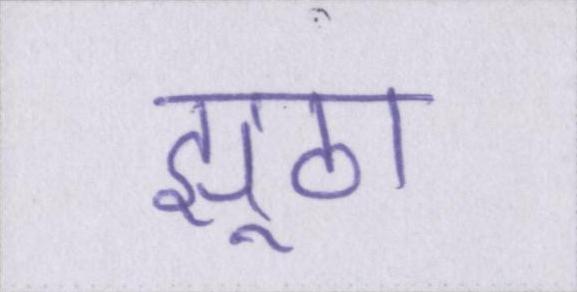 झूठा